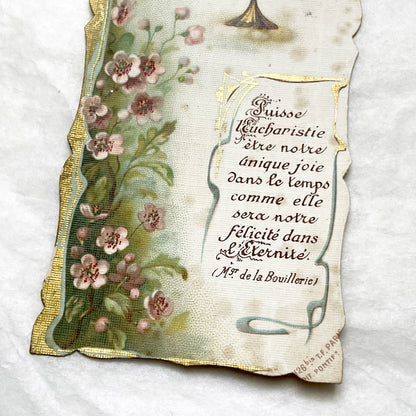 Puisse
l'Eucharistie
être notre
unique joie
dans le temps
comme elle
sera notre
félicité dans
l'Eternité.
(Mgr. de la Bouillerie)
126 bis T.F. PARI
PONTIF